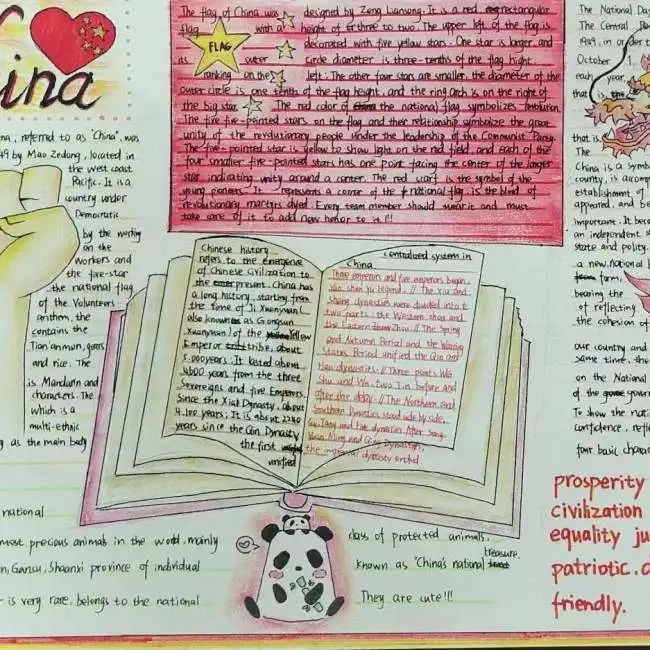 ina
The flag of China was designed by Zeng Liansong. It is a red rectangular
flag with a height of three to two. The upper left of the flag is
FLAG
decorated with five yellow stars. One star is larger and
its outer circle diameter is three-tenths of the flag hight
ranking on the left. The other four stars are smaller, the diameter of the
outer circle is one tenth of the flag height, and the ring arch is on the right of
the big star. The red color of the national flag symbolizes revolution.
The five five-pointed stars on the flag and their relationship symbolize the great
unity of the revolutionary people under the leadership of the Communist Party.
The five-pointed star is yellow to show light on the red field, and each of the
four smaller five-pointed stars has one point facing the center of the larger
star, indicating unity around a center. The red scarf is the symbol of the
young pioneers. It represents a corner of the national flag, is the blood of
revolutionary martyrs dyed. Every team member should wear it and must
take care of it to add new honor to it!!!
na, referred to as "China", was
49 by Mao Zedong, located in
the west coast
Pacific. It is a
country under
Democratic
by the working
on the
workers and
the five-star
the national flag
of the Volunteers
anthem, the
contains the
Tian'anmen, gears
and rice. The
is Mandarin and
characters. The
which is a
multi-ethnic
g as the main body
Chinese history
refers to the emergence
of Chinese Civilization to
the present. China has
a long history, starting from
the time of Xuanyuan (
also known as Gongsun
Xuanyuan) of the Yellow
Emperor tribe, about
5,000 years. It lasted about
4600 years from the three
Sovereigns and five Emperors.
Since the Xia Dynasty, about
4,100 years; It is about 2240
years since the Qin Dynasty
the first
unified
centralized system in
China
Three emperors and five emperors began,
Yao, shun Yu legend. // The Xia and
Shang dynasties were divided into t
two parts: the Western zhou and
the Eastern Zhou. // The Spring
and Autumn Period and the Warring
States Period unified the Qin and
Han dynasties. // Three points Wei
Shu and Wu, two Jin before and
after the delay. // The Northern and
Southern Dynasties stand side by side,
Sui, Tang and five dynasties. After Song
Yuan Ming and Qing Dynasties,
the imperial dynasty ended
The National Day
The Central Pe
1949, in order t
October 1,
each year
that
that is.
The
China is a symb
county, is accomp
establishment of
appeared, and be
important. It bec
an independent s
state and polity.
a new, national
form,
bearing the
of reflecting
the cohesion of
our country and
same time, the
on the National
of the gover
To show the nati
confidence, refl
four basic charac
prosperity
civilization
equality ju
patriotic. d
friendly.
national
most precious animals in the world, mainly
n, Gansu, Shaanxi province of individual
r is very rare, belongs to the national
class of protected animals,
known as "China's national treasure.
They are cute!!!